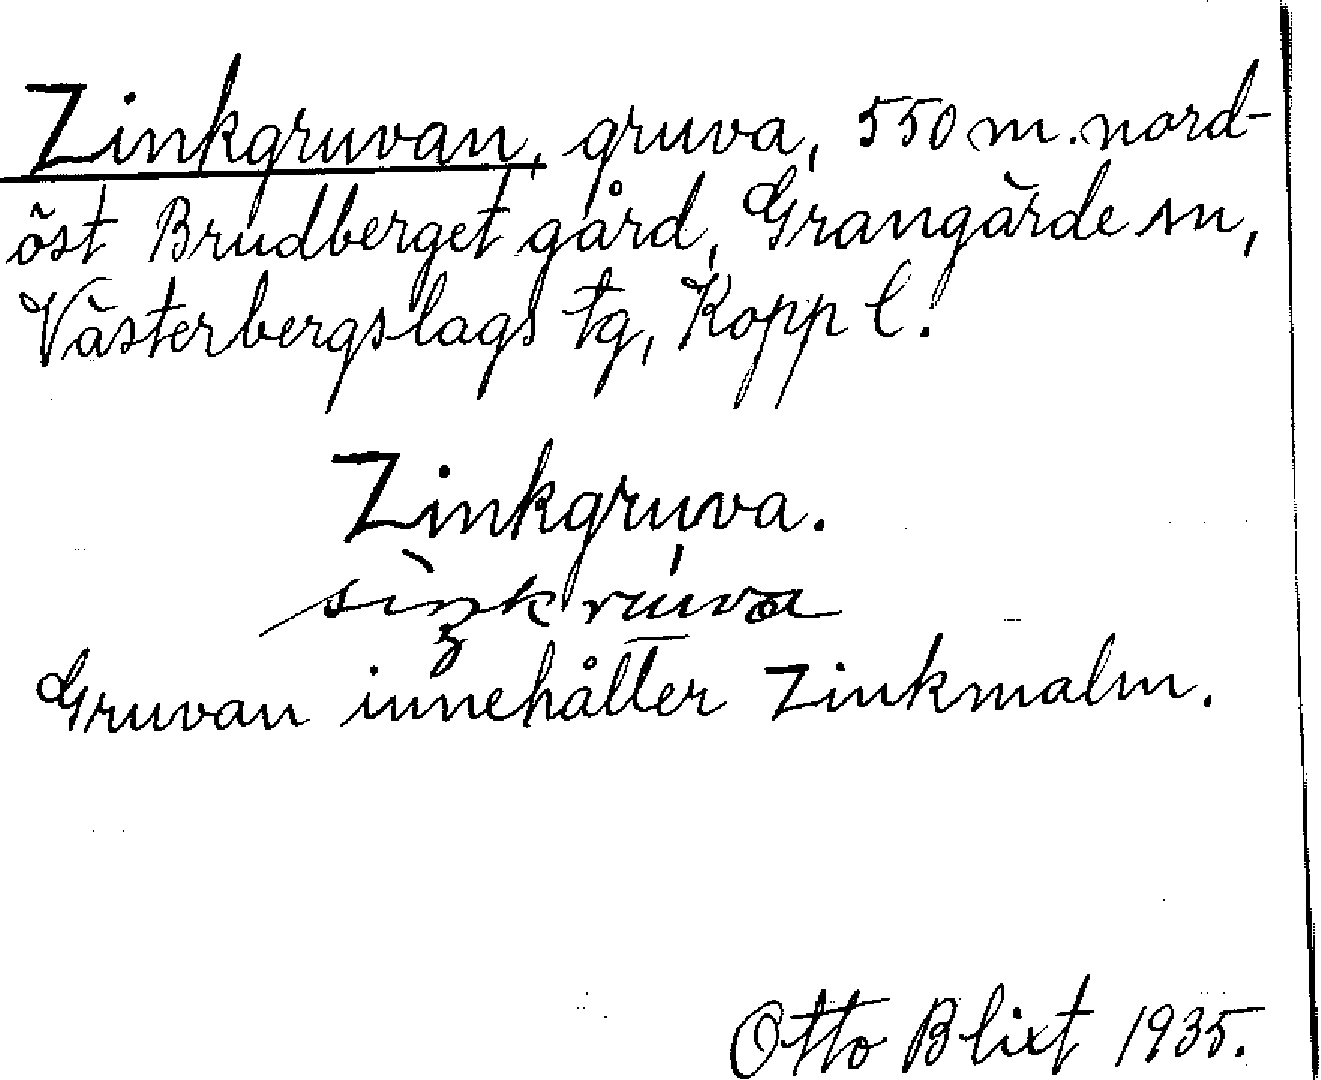 Zinkgruvan, gruva, 550 m. nord-
öst Brudberget gård, Grangärde sn,
Västerbergslags tg, Kopp l.
Zinkgruva.
Gruvan innehåller Zinkmalm.
Otto Blixt 1935.